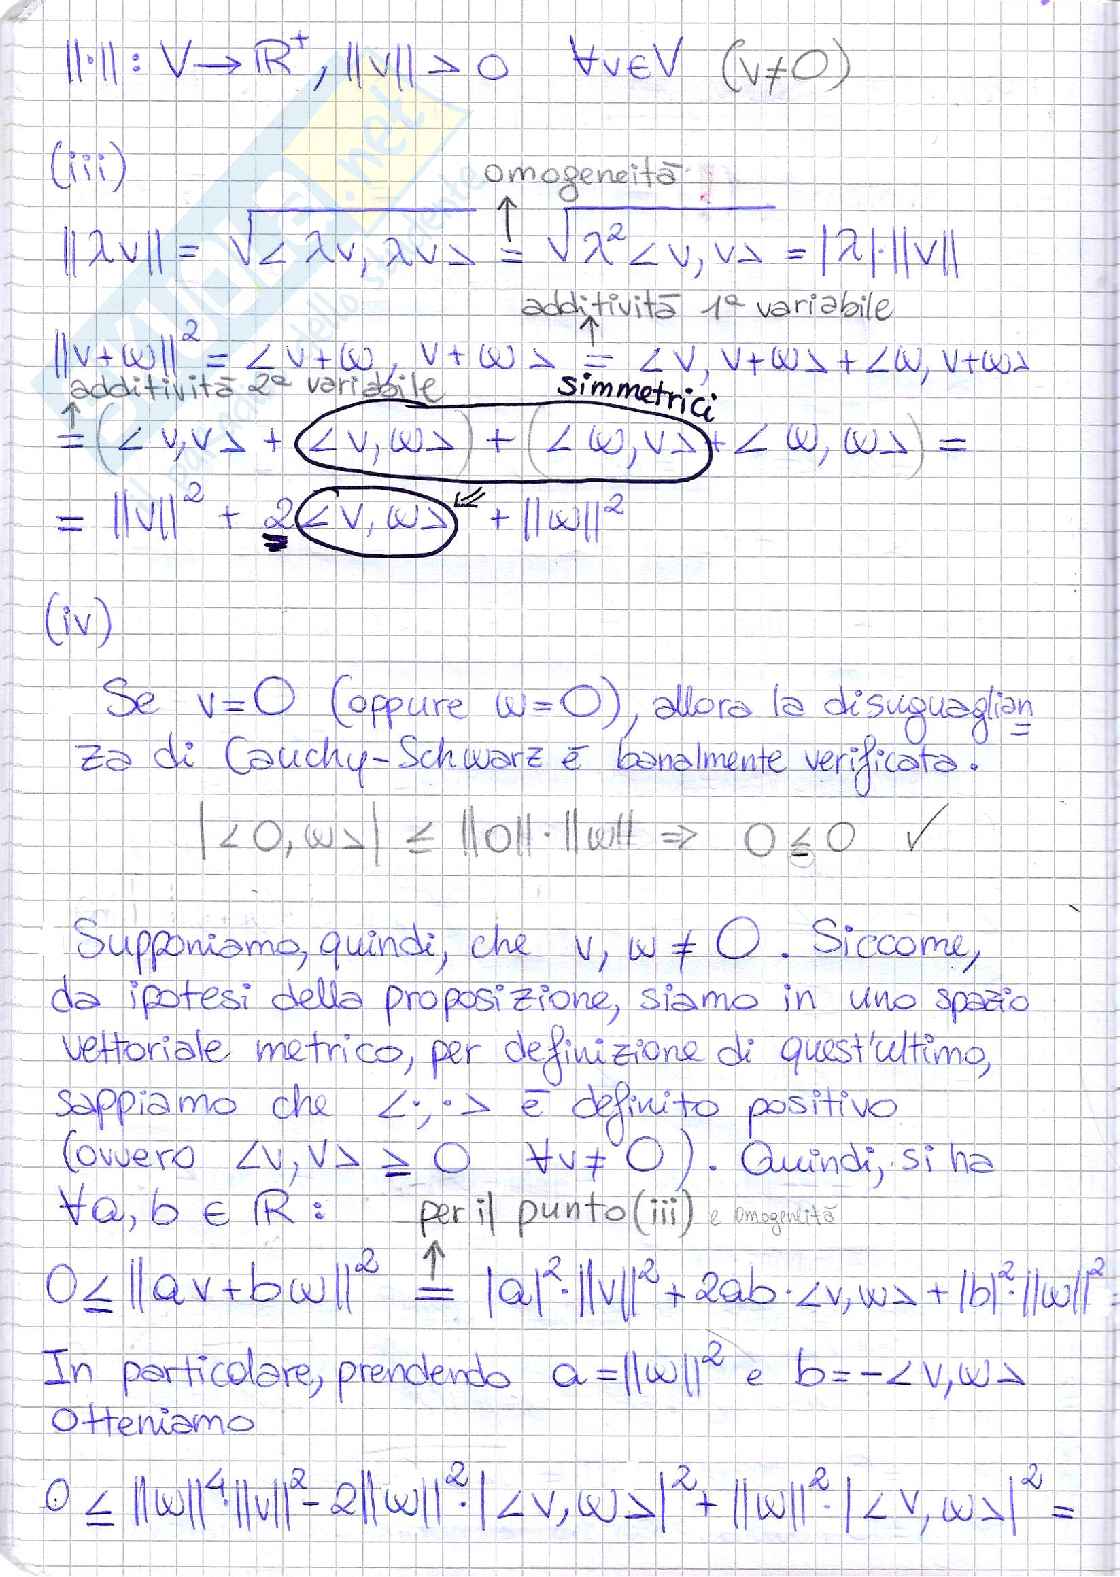 ||·|| : V → ℝ⁺, ||v|| > 0 ∀v∈V (v≠0)
(iii)
omogeneità
||λv|| = √<λv, λv> = √λ²<v, v> = |λ|·||v||
additività 1ª variabile
||v+ω||² = <v+ω, v+ω> = <v, v+ω> + <ω, v+ω>
additività 2ª variabile simmetrici
= (<v,v> + <v,ω>) + (<ω,v> + <ω,ω>) =
= ||v||² + 2<v,ω> + ||ω||²
(iv)
Se v=0 (oppure ω=0), allora la disuguaglian
za di Cauchy-Schwarz è banalmente verificata.
|<0,ω>| ≤ ||0||·||ω|| ⇒ 0≤0 ✓
Supponiamo, quindi, che v, ω ≠ 0. Siccome,
da ipotesi della proposizione, siamo in uno spazio
vettoriale metrico, per definizione di quest'ultimo,
sappiamo che <·,·> è definito positivo
(ovvero <v,v> ≥ 0 ∀v≠0). Quindi, si ha
∀a, b ∈ ℝ : per il punto (iii) e omogeneità
0 ≤ ||av+bω||² = |a|²·||v||² + 2ab·<v,ω> + |b|²·||ω||² =
In particolare, prendendo a=||ω||² e b=-<v,ω>
otteniamo
0 ≤ ||ω||⁴·||v||² - 2||ω||²·|<v,ω>|² + ||ω||²·|<v,ω>|² =